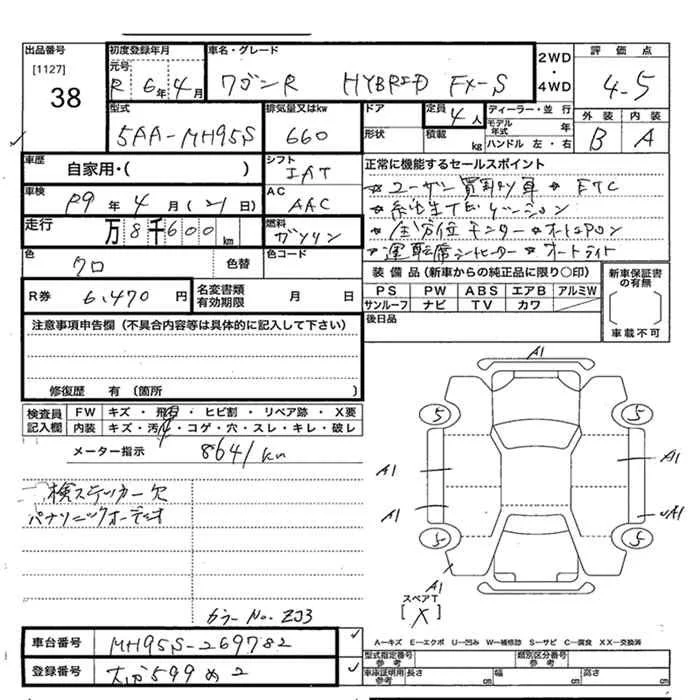 出品番号
[1127]
38
初度登録年月
元号
R 6年 4月
車名・グレード
ワゴンR HYBRID FX-S
2WD
・
4WD
評価点
4.5
型式
5AA-MH95S
排気量又はkw
660
ドア
形状
定員
4人
積載
kg
ディーラー・並行
モデル年式 年
ハンドル 左・右
外装 内装
B A
車歴
自家用・( )
シフト
IAT
正常に機能するセールスポイント
車検
R9年 4月 (21日)
AC
AAC
ETC
走行
万 8千600km
燃料
ガソリン
全方位モニター
運転席シートヒーター オートライト
色
クロ
色替
色コード
装備品(新車からの純正品に限り○印)
PS PW ABS エアB アルミW
サンルーフ ナビ TV カワ
新車保証書の有無
[ ]
車載不可
R券 6,470円
名変書類有効期限 月 日
後日品
注意事項申告欄(不具合内容等は具体的に記入して下さい)
修復歴 有(箇所 )
検査員記入欄
FW キズ・飛石・ヒビ割・リペア跡・X要
内装 キズ・汚れ・コゲ・穴・スレ・キレ・破レ
メーター指示 8641km
検ステッカー欠
パナソニックオーディオ
カラーNo. ZJ3
A1
5 5
A1 A1
A1 UA1
5 5
A1
スペアT
[X]
A-キズ E-エクボ U-凹み W-補修跡 S-サビ C-腐食 XX-交換済
車台番号 MH95S-269782
登録番号
型式指定番号 参考
類別区分番号 参考
車庫証明用 参考 長さ cm 幅 cm 高さ cm